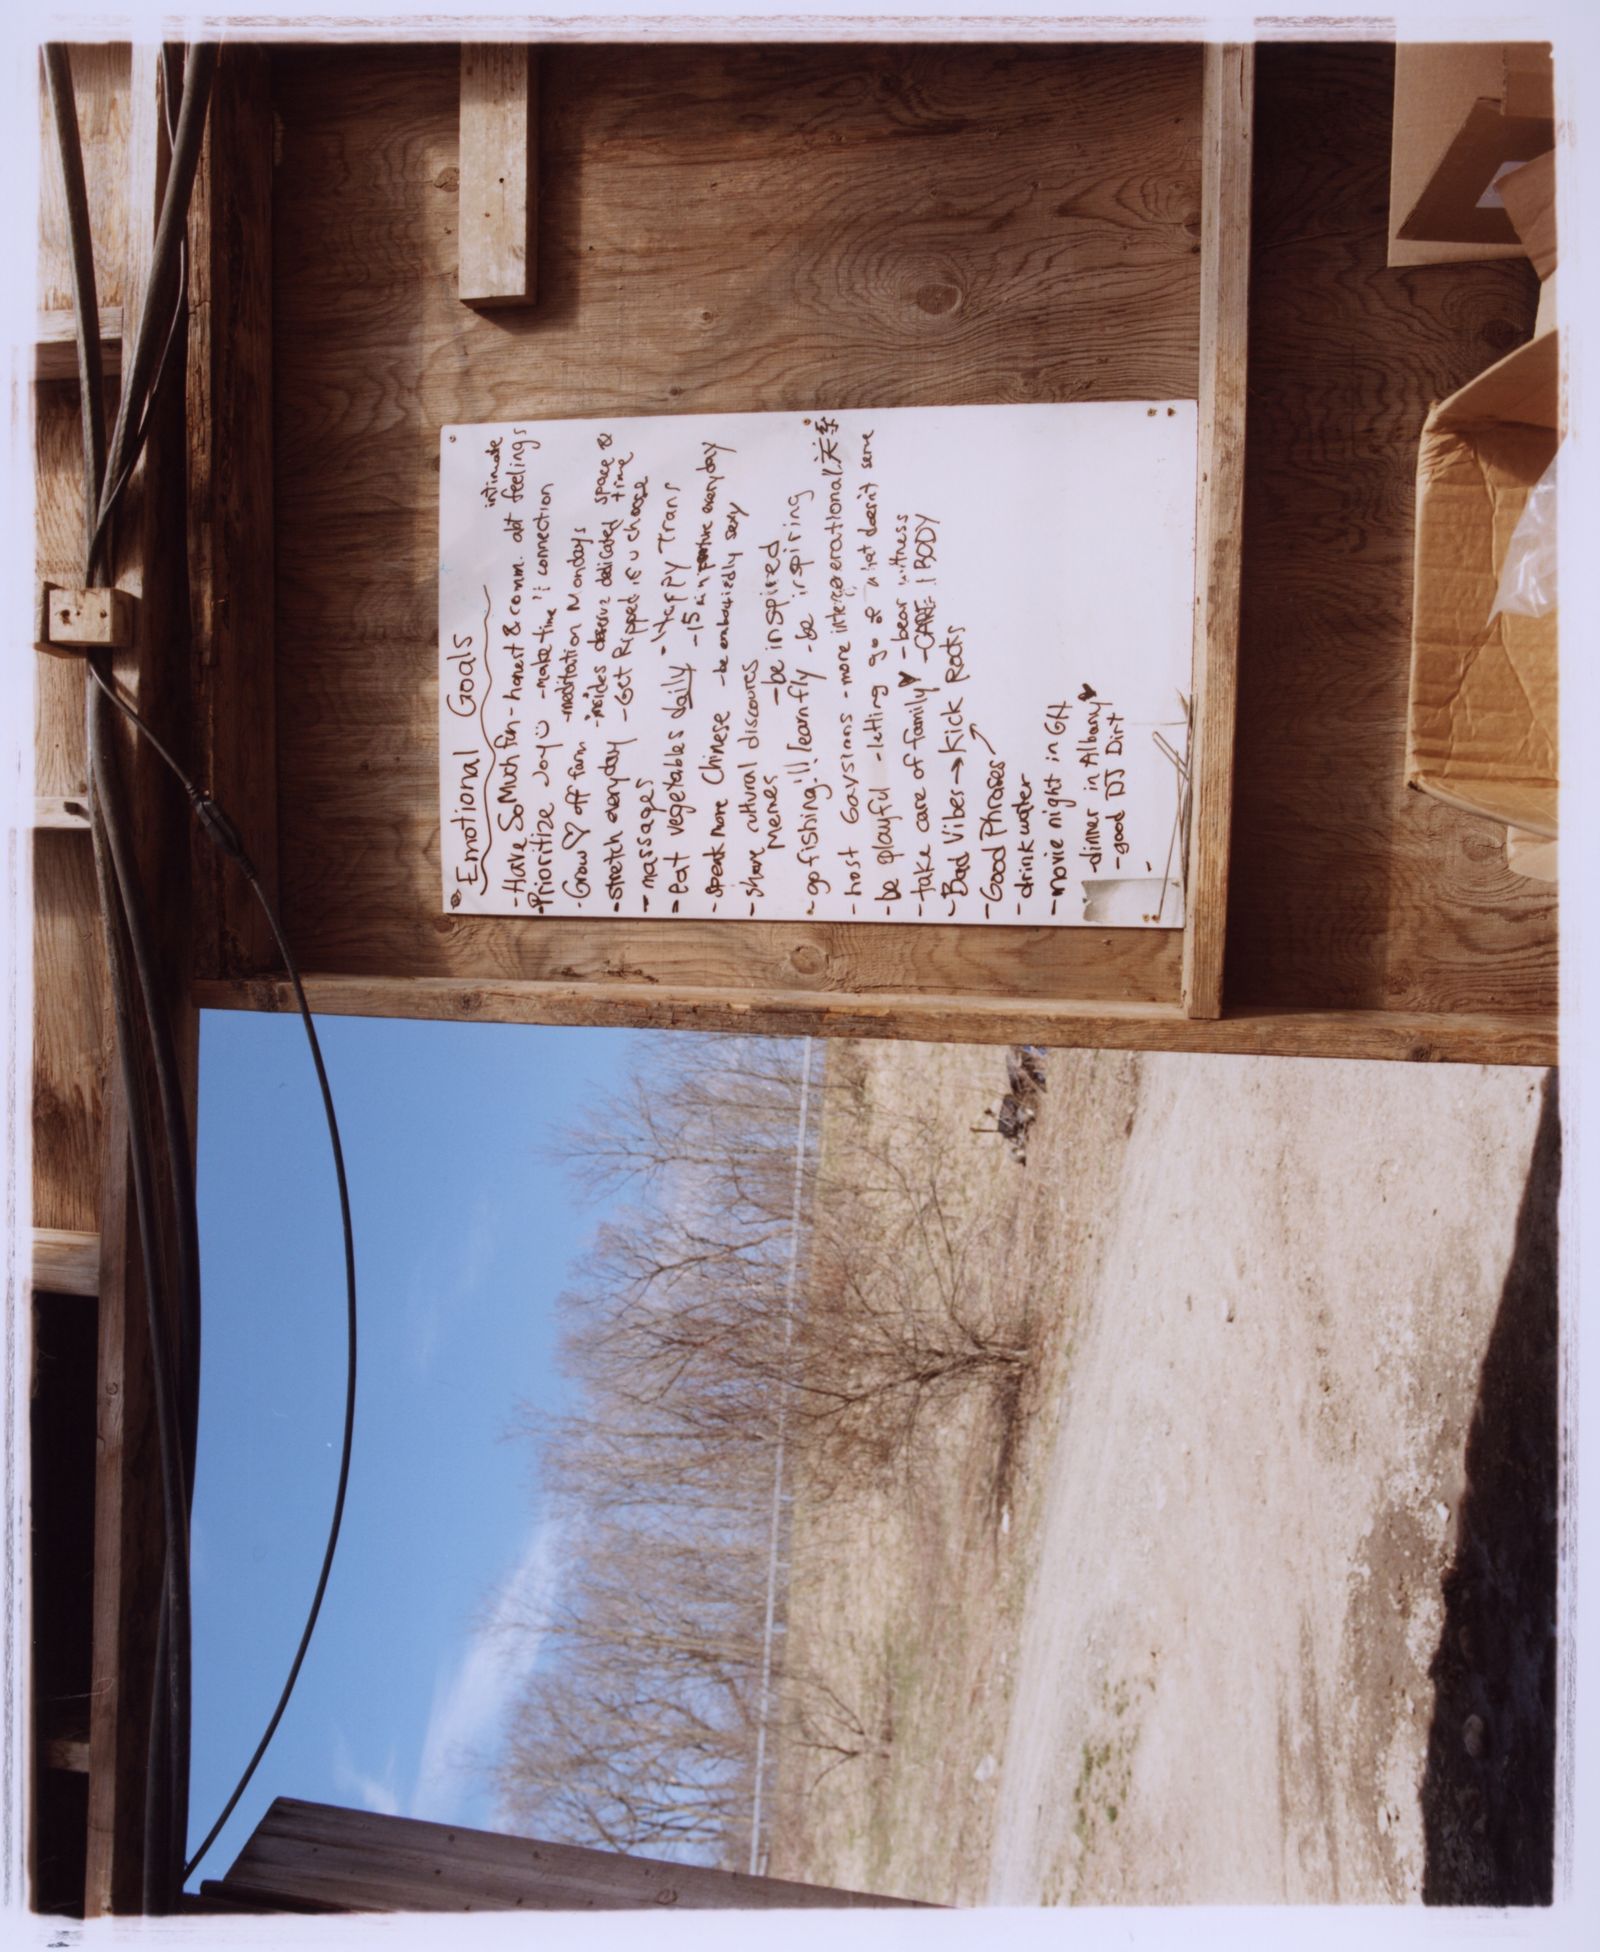 Emotional Goals
- Have So Much fun - honest & comm. abt intimate feelings
- Prioritize Joy - make time 4 connection
- Grow ♡ off farm - meditation Mondays
- insides deserve delicated space & time
- stretch everyday - Get Ripped if u choose
- massages
- eat vegetables daily - "Happy Trans"
- speak more Chinese - 15 min everyday
- be embodiedly sexy
- share cultural discoures
memes - be inspired
- go fishing!!! learn fly - be inspiring
- host Gaysians - more intergenerational 关系
- be playful - letting go of what doesn't serve
- take care of family ♥ - bear witness
- Bad Vibes → Kick Rocks - CARE 1 BODY
- Good Phrases
- drink water
- movie night in GH
- dinner in Albany ♥
- good DJ Dirt
-